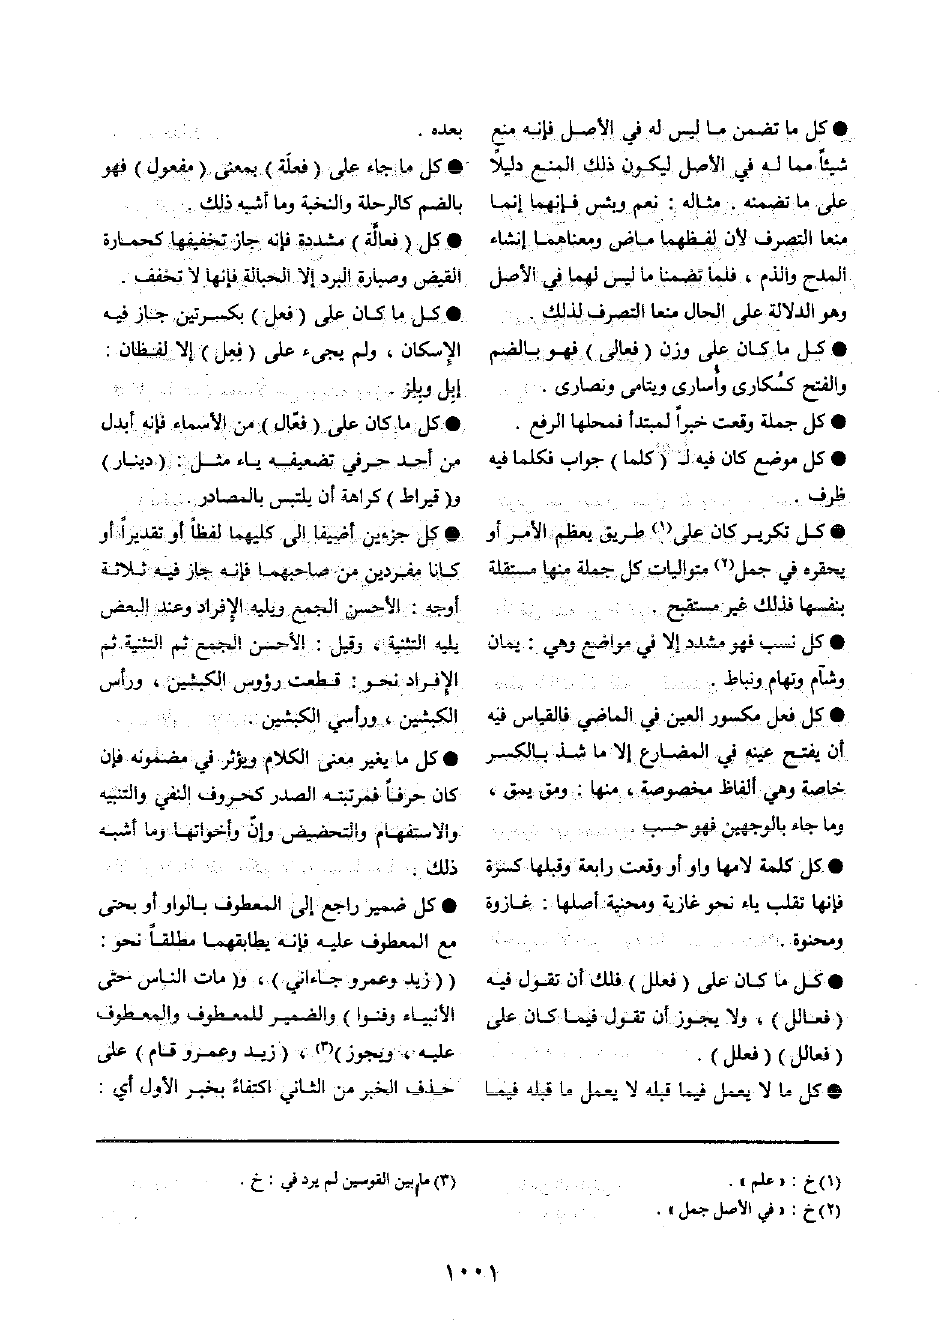 ● كل ما تضمن ما ليس له في الأصل فإنه منع
شيئاً مما له في الأصل ليكون ذلك المنع دليلاً
على ما تضمنه . مثاله : نعم وبئس فإنهما إنما
منعا التصرف لأن لفظهما ماض ومعناهما إنشاء
المدح والذم ، فلما تضمنا ما ليس لهما في الأصل
وهو الدلالة على الحال منعا التصرف لذلك .
● كل ما كان على وزن ( فعالى ) فهو بالضم
والفتح كسُكارى وأُسارى ويتامى ونصارى .
● كل جملة وقعت خبراً لمبتدأ فمحلها الرفع .
● كل موضع كان فيه لـ ( كلما ) جواب فكلما فيه
ظرف .
● كل تكرير كان على(١) طريق يعظم الأمر أو
يحقره في جمل(٢) متواليات كل جملة منها مستقلة
بنفسها فذلك غير مستقبح .
● كل نسب فهو مشدد إلا في مواضع وهي : يمان
وشآم وتهام ونباط .
● كل فعل مكسور العين في الماضي فالقياس فيه
أن يفتح عينه في المضارع إلا ما شذ بالكسر
خاصة وهي ألفاظ مخصوصة ، منها : ومق يمق ،
وما جاء بالوجهين فهو حسب .
● كل كلمة لامها واو أو وقعت رابعة وقبلها كسرة
فإنها تقلب ياء نحو غازية ومحنية أصلها : غازوة
ومحنوة .
● كل ما كان على ( فعلل ) فلك أن تقول فيه
( فعالل ) ، ولا يجوز أن تقول فيما كان على
( فعالل ) ( فعلل ) .
● كل ما لا يعمل فيما قبله لا يعمل ما قبله فيما
بعده .
● كل ما جاء على ( فعلَة ) بمعنى ( مفعول ) فهو
بالضم كالرحلة والنخبة وما أشبه ذلك .
● كل ( فعالَّة ) مشددة فإنه جاز تخفيفها كحمارة
القيض وصبارة البرد إلا الحبالة فإنها لا تخفف .
● كل ما كان على ( فعل ) بكسرتين جاز فيه
الإسكان ، ولم يجىء على ( فِعِل ) إلا لفظان :
إبل وبلز .
● كل ما كان على ( فعّال ) من الأسماء فإنه أبدل
من أحد حرفي تضعيفه ياء مثل : ( دينار )
و( قيراط ) كراهة أن يلتبس بالمصادر .
● كل جزءين أضيفا الى كليهما لفظاً أو تقديراً أو
كانا مفردين من صاحبهما فإنه جاز فيه ثلاثة
أوجه : الأحسن الجمع ويليه الإفراد وعند البعض
يليه التثنية ، وقيل : الأحسن الجمع ثم التثنية ثم
الإفراد نحو : قطعت رؤوس الكبشين ، ورأس
الكبشين ، ورأسي الكبشين .
● كل ما يغير معنى الكلام ويؤثر في مضمونه فإن
كان حرفاً فمرتبته الصدر كحروف النفي والتنبيه
والاستفهام والتحضيض وإنّ وأخواتها وما أشبه
ذلك .
● كل ضمير راجع إلى المعطوف بالواو أو بحتى
مع المعطوف عليه فإنه يطابقهما مطلقاً نحو :
( ( زيد وعمرو جاءاني ) ، و( مات الناس حتى
الأنبياء وفنوا ) والضمير للمعطوف والمعطوف
عليه ، ويجوز )(٣) ، ( زيد وعمرو قام ) على
حذف الخبر من الثاني اكتفاءً بخبر الأول أي :
(١) خ : « علم » .
(٢) خ : « في الأصل جمل » .
(٣) ما بين القوسين لم يرد في : خ .
١٠٠١